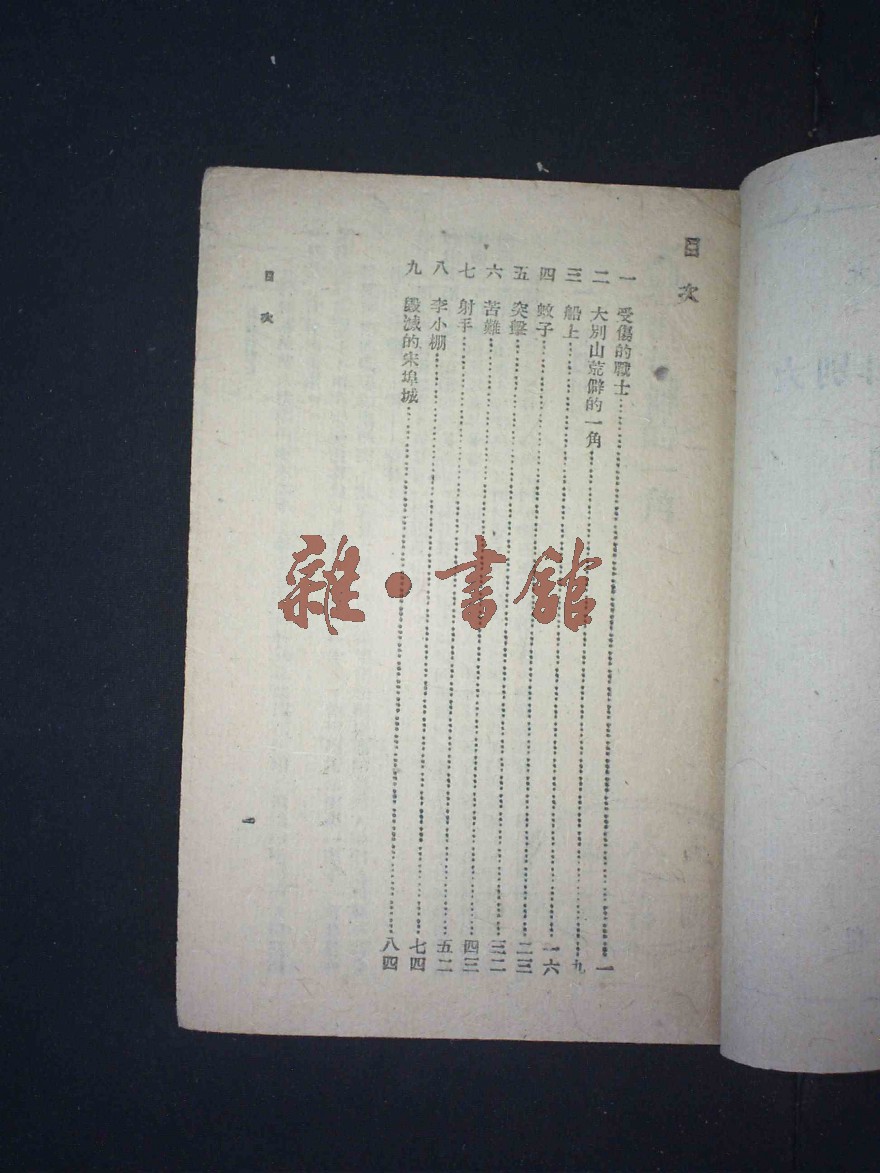 目次
一 受傷的戰士 一
二 大別山荒僻的一角 九
三 船上 一六
四 蚊子 二三
五 突擊 三二
六 苦難 四三
七 射手 五二
八 李小棚 七四
九 毀滅的宋埠城 八四
目次
一
雜·書館